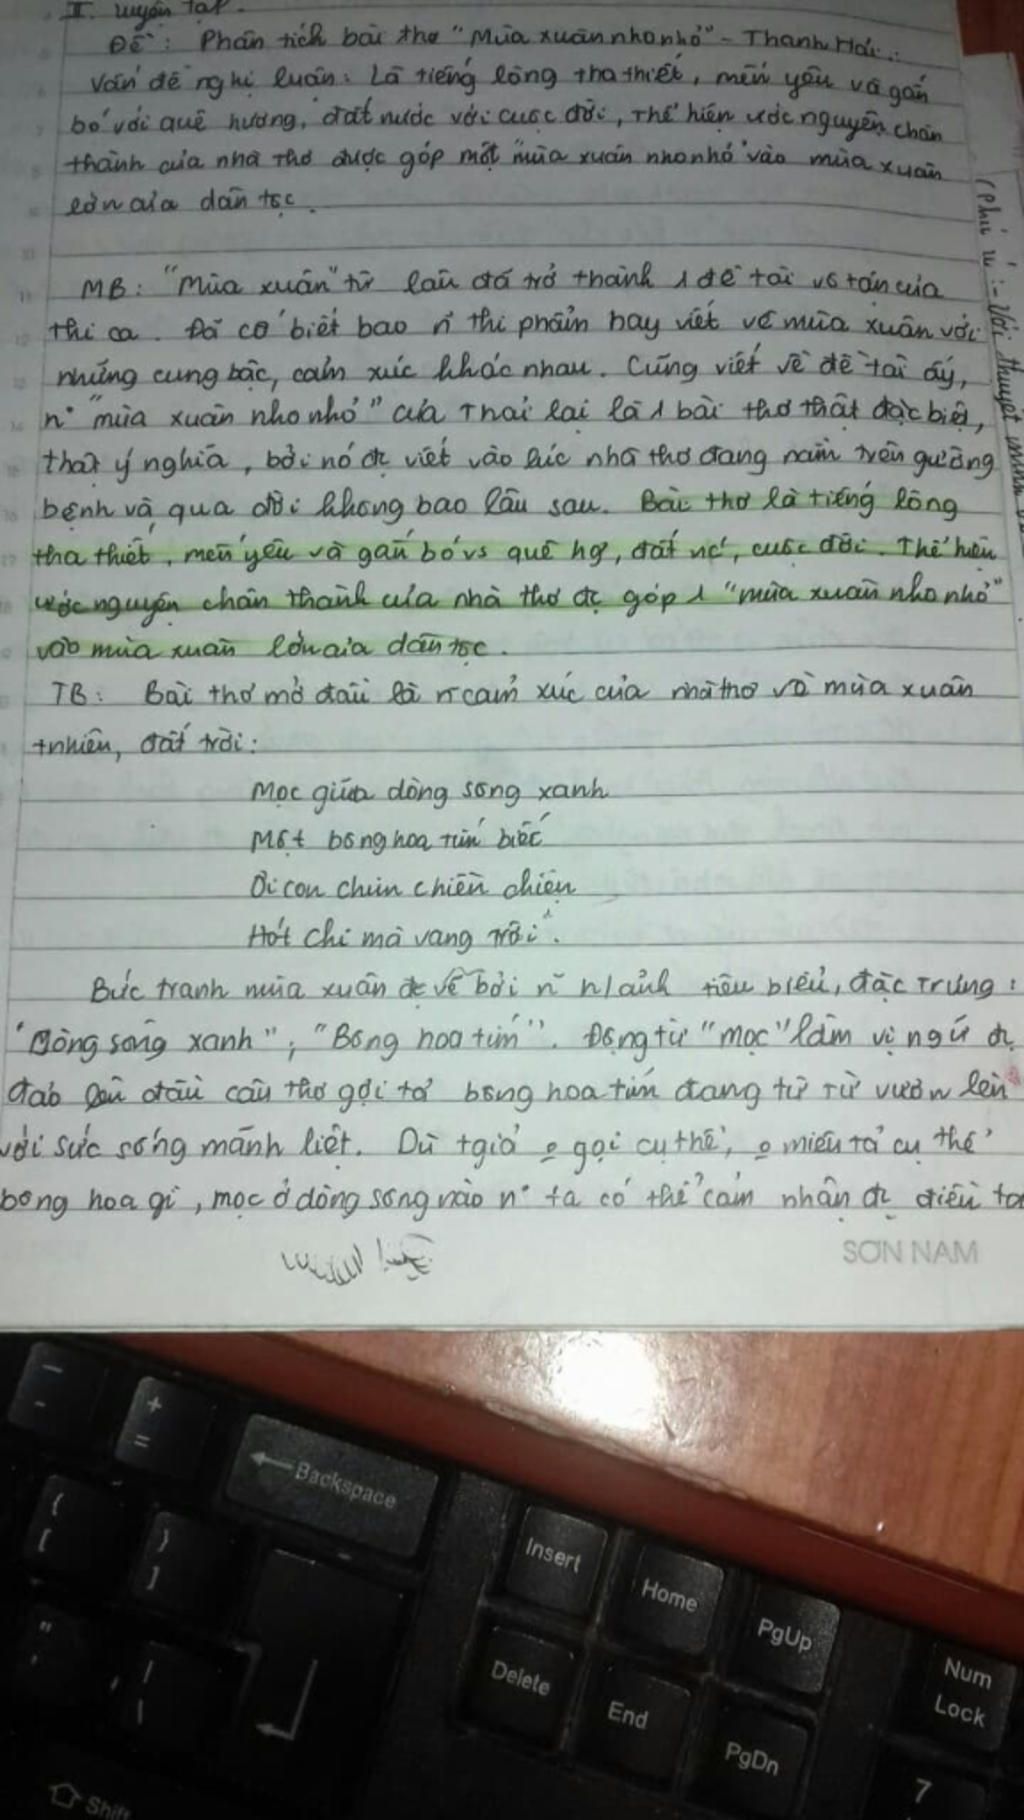 II. Luyện tập.
Đề: Phân tích bài thơ "Mùa xuân nho nhỏ" - Thanh Hải.
Vấn đề nghị luận: Là tiếng lòng tha thiết, mến yêu và gắn
bó với quê hương, đất nước với cuộc đời, thể hiện ước nguyện chân
thành của nhà thơ được góp một "mùa xuân nho nhỏ" vào mùa xuân
lớn của dân tộc.
MB: "Mùa xuân" từ lâu đã trở thành 1 đề tài vô tận của
thi ca. Đã có biết bao n~ thi phẩm hay viết về mùa xuân với
những cung bậc, cảm xúc khác nhau. Cũng viết về đề tài ấy,
n° "mùa xuân nho nhỏ" của THải lại là 1 bài thơ thật đặc biệt,
thật ý nghĩa, bởi nó đc viết vào lúc nhà thơ đang nằm trên giường
bệnh và qua đời không bao lâu sau. Bài thơ là tiếng lòng
tha thiết, mến yêu và gắn bó vs quê hg, đất nc, cuộc đời. Thể hiện
ước nguyện chân thành của nhà thơ đc góp 1 "mùa xuân nho nhỏ"
vào mùa xuân lớn của dân tộc.
TB: Bài thơ mở đầu là n~ cảm xúc của nhà thơ về mùa xuân
tnhiên, đất trời:
Mọc giữa dòng sông xanh
Một bông hoa tím biếc
Ơi con chim chiền chiện
Hót chi mà vang trời".
Bức tranh mùa xuân đc vẽ bởi n~ h/ảnh tiêu biểu, đặc trưng:
"Dòng sông xanh", "Bông hoa tím". Động từ "mọc" làm vị ngữ đc
đảo lên đầu câu thơ gợi tả bông hoa tím đang từ từ vươn lên
với sức sống mãnh liệt. Dù tgiả o gọi cụ thể, o miêu tả cụ thể
bông hoa gì, mọc ở dòng sông nào n° ta có thể cảm nhận đc điều
SƠN NAM
(Phú ý: - Với thuyết minh
Backspace
Insert
Home
PgUp
Delete
End
PgDn
Num
Lock
7
Shift